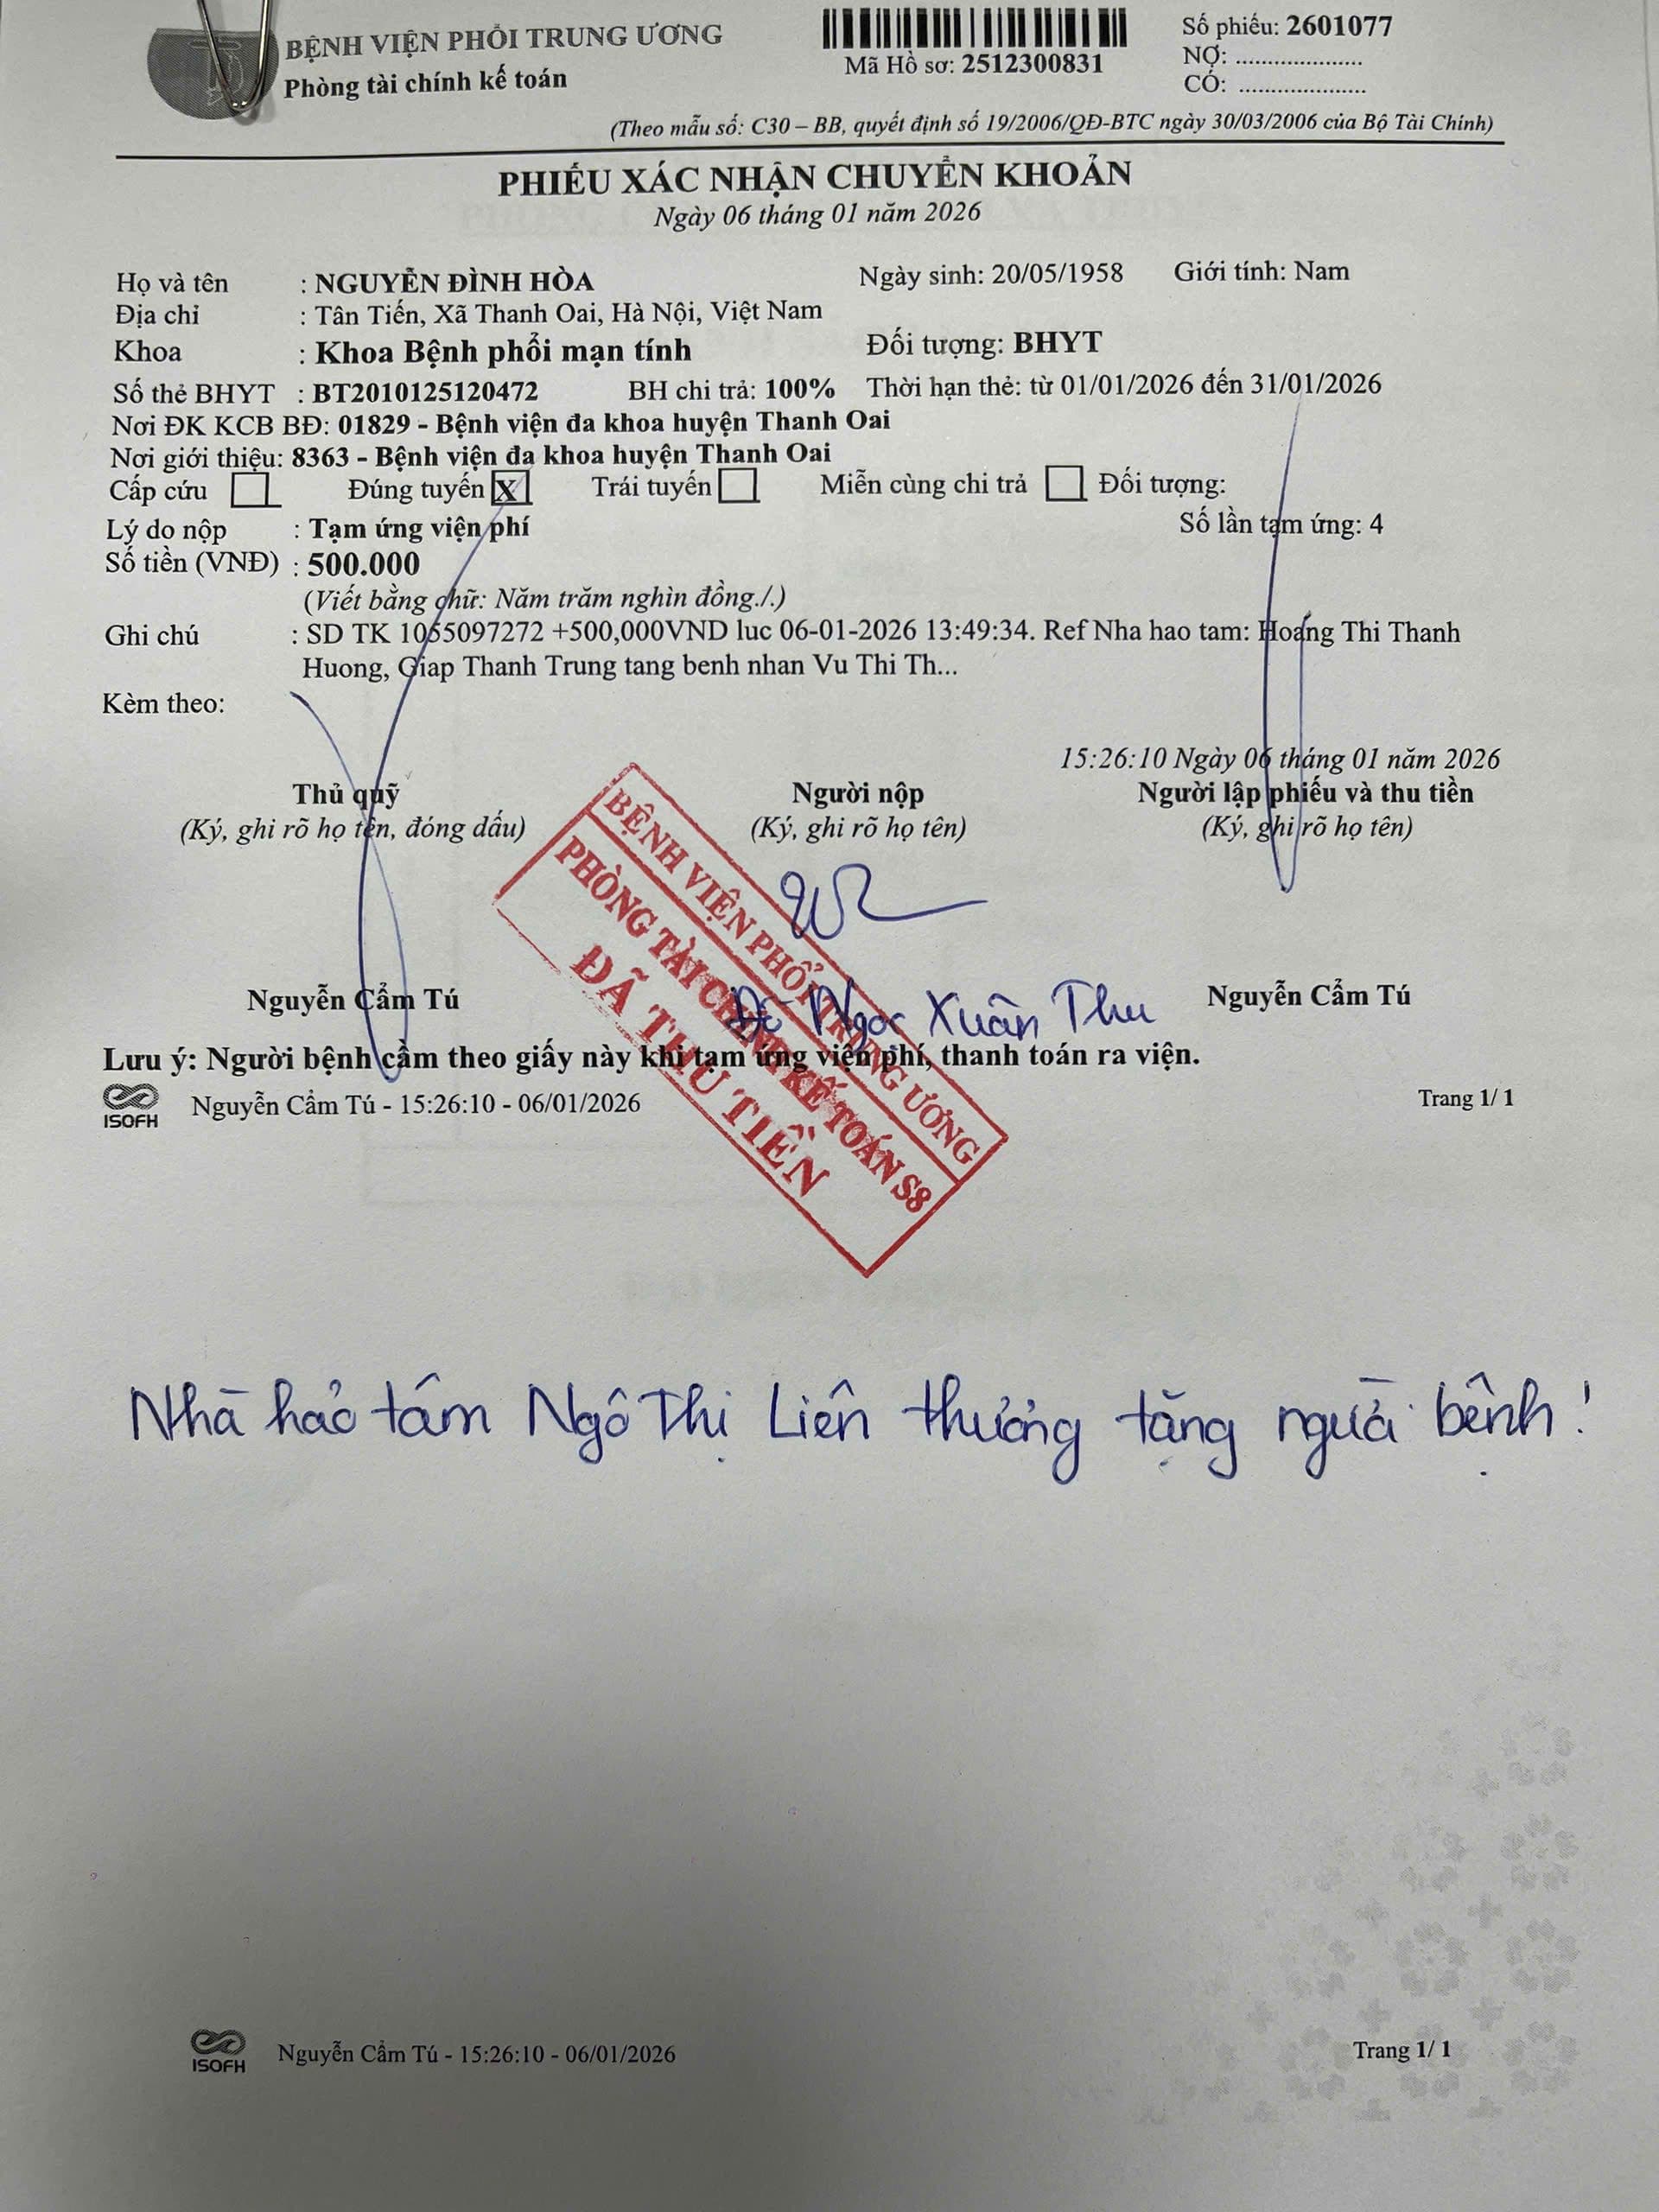 BỆNH VIỆN PHỔI TRUNG ƯƠNG
Phòng tài chính kế toán
Mã Hồ sơ: 2512300831
Số phiếu: 2601077
NỢ: .....................
CÓ: .....................
(Theo mẫu số: C30 – BB, quyết định số 19/2006/QĐ-BTC ngày 30/03/2006 của Bộ Tài Chính)
PHIẾU XÁC NHẬN CHUYỂN KHOẢN
Ngày 06 tháng 01 năm 2026
Họ và tên : NGUYỄN ĐÌNH HÒA Ngày sinh: 20/05/1958 Giới tính: Nam
Địa chỉ : Tân Tiến, Xã Thanh Oai, Hà Nội, Việt Nam
Khoa : Khoa Bệnh phổi mạn tính Đối tượng: BHYT
Số thẻ BHYT : BT2010125120472 BH chi trả: 100% Thời hạn thẻ: từ 01/01/2026 đến 31/01/2026
Nơi ĐK KCB BĐ: 01829 - Bệnh viện đa khoa huyện Thanh Oai
Nơi giới thiệu: 8363 - Bệnh viện đa khoa huyện Thanh Oai
Cấp cứu Đúng tuyến X Trái tuyến Miễn cùng chi trả Đối tượng:
Lý do nộp : Tạm ứng viện phí Số lần tạm ứng: 4
Số tiền (VNĐ) : 500.000
(Viết bằng chữ: Năm trăm nghìn đồng./.)
Ghi chú : SD TK 1055097272 +500,000VND luc 06-01-2026 13:49:34. Ref Nha hao tam: Hoang Thi Thanh
Huong, Giap Thanh Trung tang benh nhan Vu Thi Th...
Kèm theo:
15:26:10 Ngày 06 tháng 01 năm 2026
Thủ quỹ Người nộp Người lập phiếu và thu tiền
(Ký, ghi rõ họ tên, đóng dấu) (Ký, ghi rõ họ tên) (Ký, ghi rõ họ tên)
BỆNH VIỆN PHỔI TRUNG ƯƠNG
PHÒNG TÀI CHÍNH KẾ TOÁN S8
ĐÃ THU TIỀN
Nguyễn Cẩm Tú Đỗ Ngọc Xuân Thu Nguyễn Cẩm Tú
Lưu ý: Người bệnh cầm theo giấy này khi tạm ứng viện phí, thanh toán ra viện.
ISOFH Nguyễn Cẩm Tú - 15:26:10 - 06/01/2026 Trang 1/ 1
Nhà hảo tâm Ngô Thị Liên thưởng tặng người bệnh!
ISOFH Nguyễn Cẩm Tú - 15:26:10 - 06/01/2026 Trang 1/ 1